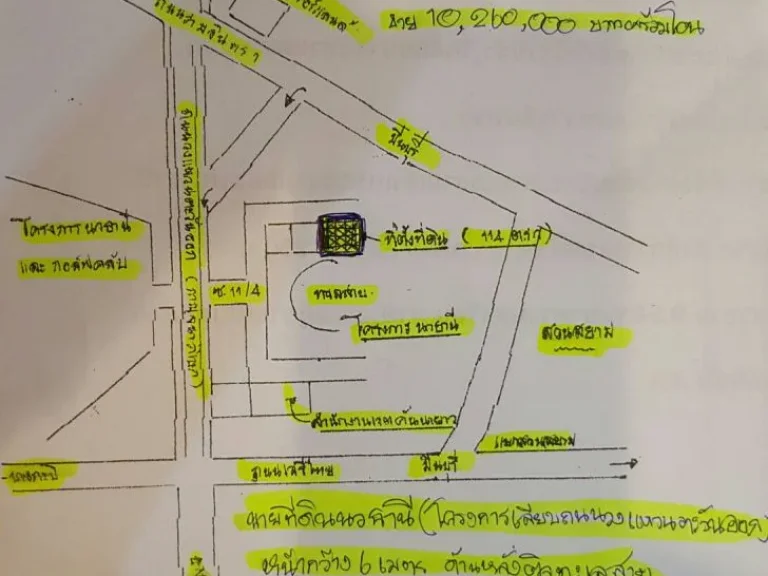 ขาย 10,260,000 บาทพร้อมโอน
ถนนรามอินทรา
มีนบุรี
ถนนวงแหวนตะวันออก (กาญจนาภิเษก)
โครงการ นายานี
และ กอล์ฟคลับ
ที่ตั้งที่ดิน ( 114 ตรว)
ซ. 11/4
ทะเลสาบ
โครงการ นายานี
สวนสยาม
สำนักงานเขตคันนายาว
แยกสวนสยาม
บางกะปิ
ถนนเสรีไทย
มีนบุรี
(โครงการเลียบถนนวงแหวนตะวันออก)
หน้ากว้าง 6 เมตร ด้านหลังติดทะเลสาบ